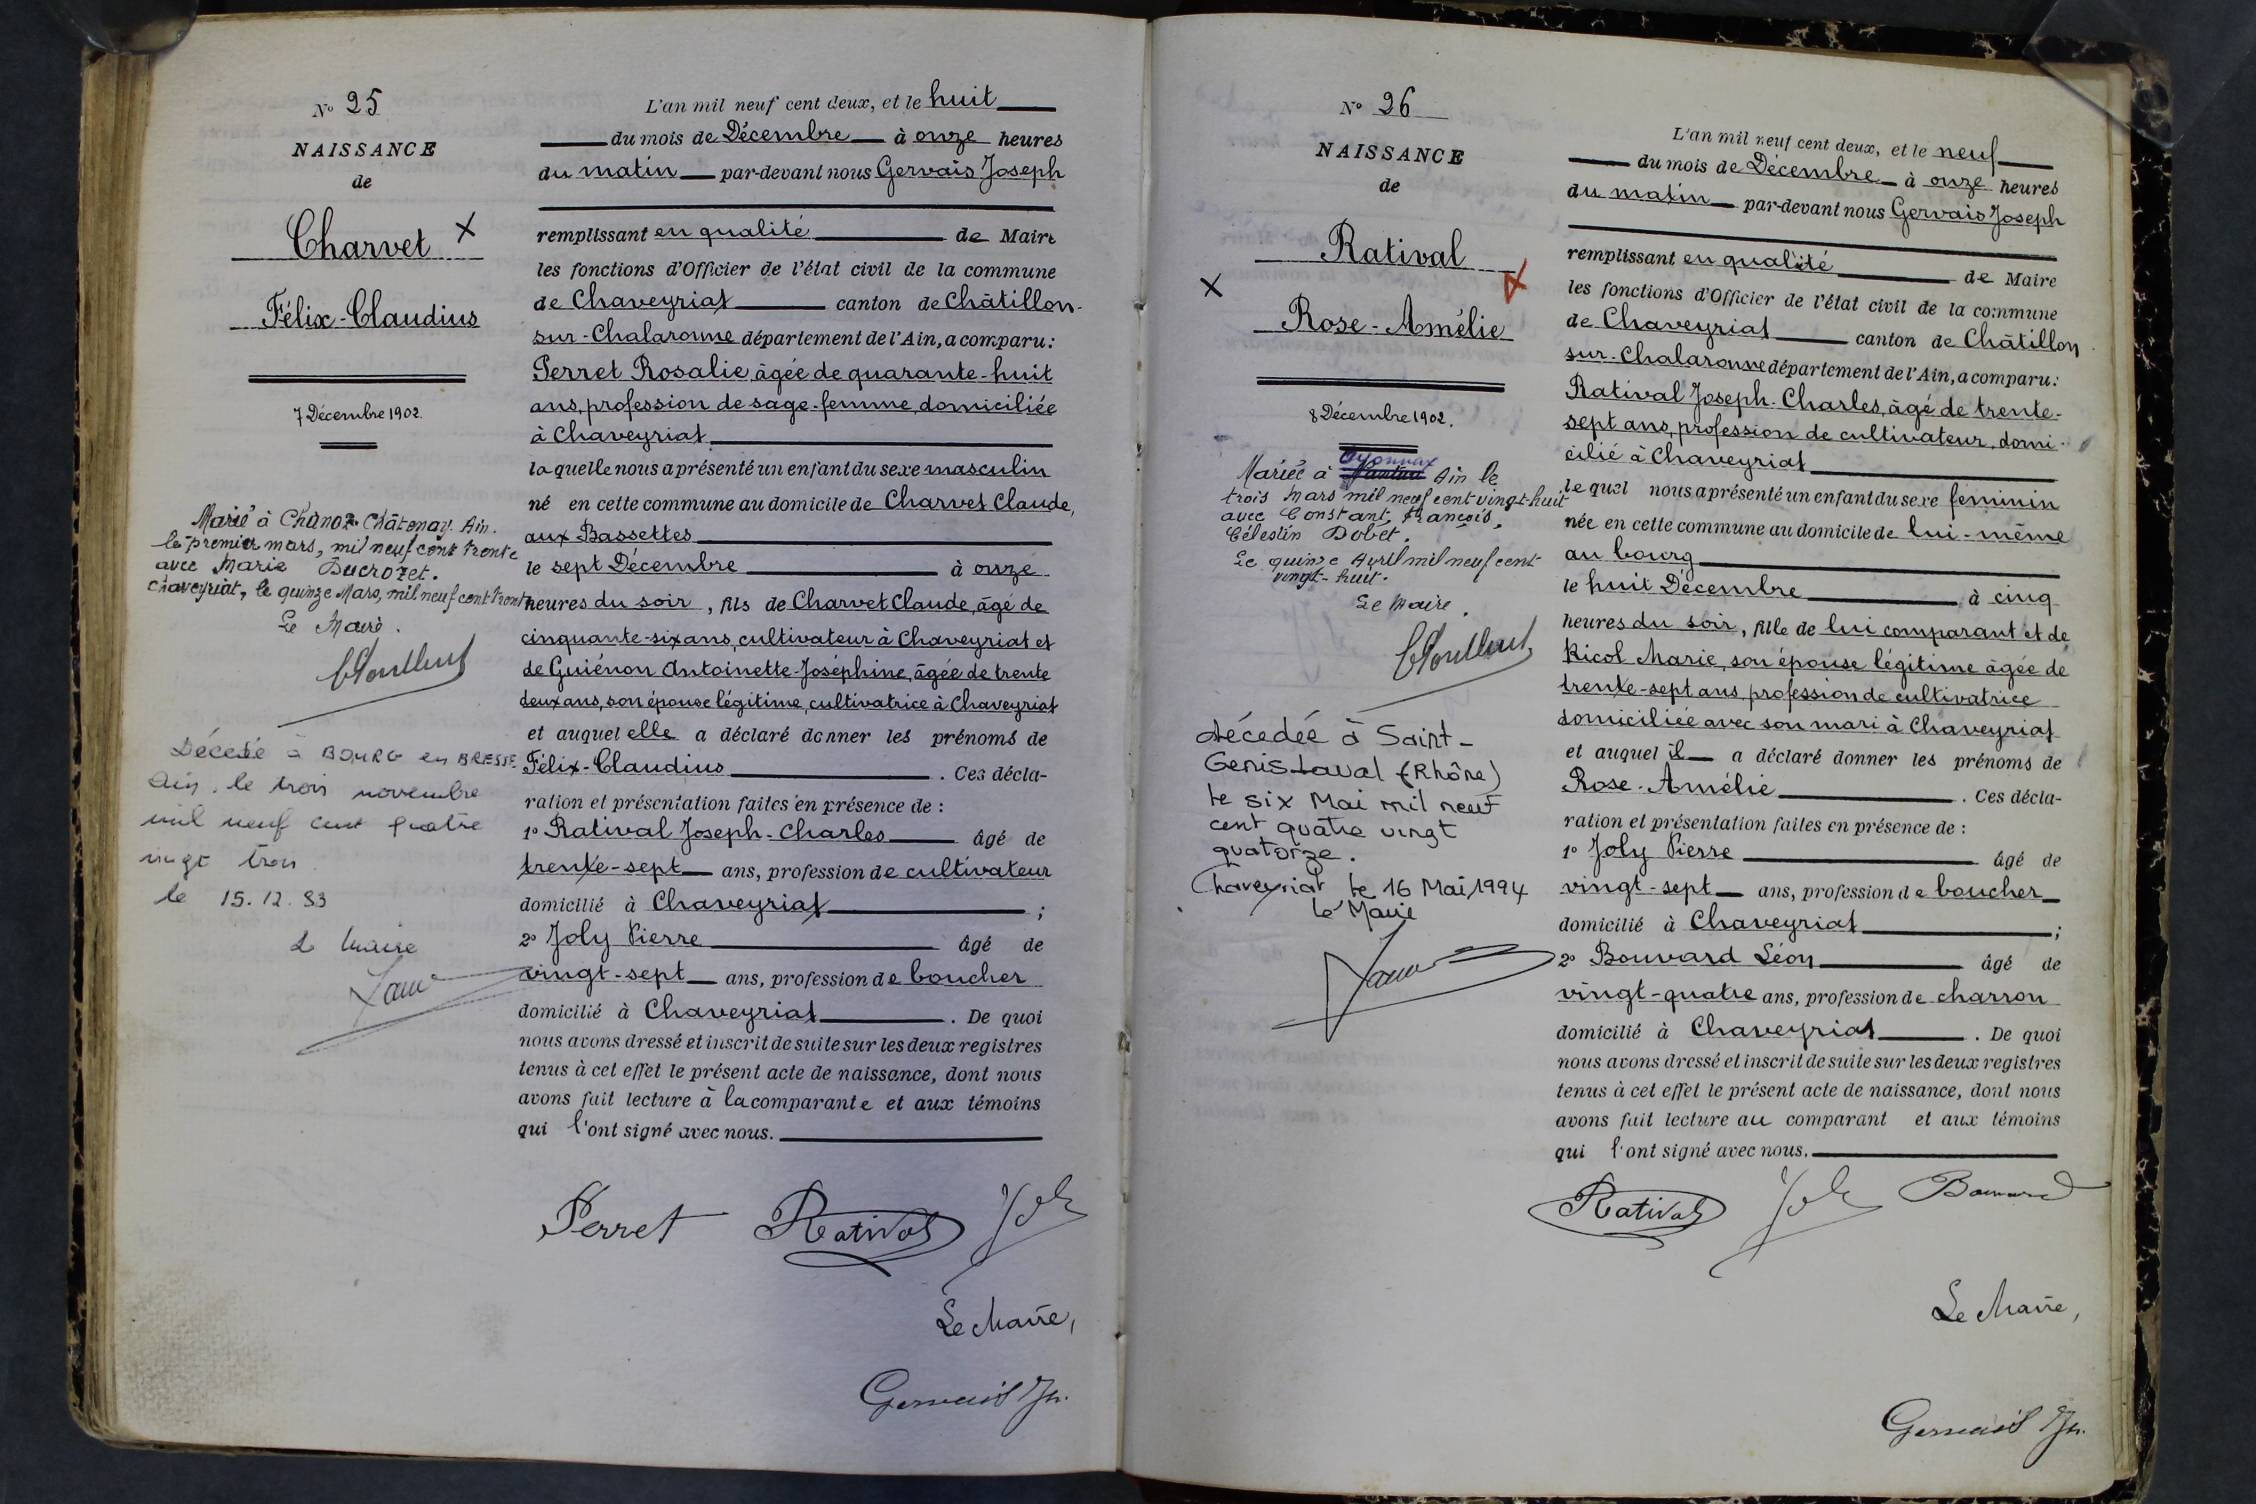 N° 25
NAISSANCE
de
Charvet
Félix-Claudius
7 Décembre 1902.
Marié à Chanoz-Châtenay. Ain.
le premier mars, mil neuf cent trente
avec Marie Ducrozet.
Chaveyriat, le quinze Mars, mil neuf cent trente
Le Maire.
Décédé à BOURG en BRESSE
Ain, le trois novembre
mil neuf cent quatre
vingt trois
le 15.12.83
Le Maire
L'an mil neuf cent deux, et le huit
du mois de Décembre à onze heures
du matin par-devant nous Gervais Joseph
remplissant en qualité de Maire
les fonctions d'Officier de l'état civil de la commune
de Chaveyriat canton de Châtillon-
sur-Chalaronne département de l'Ain, a comparu:
Perret Rosalie, âgée de quarante-huit
ans, profession de sage-femme, domiciliée
à Chaveyriat
laquelle nous a présenté un enfant du sexe masculin
né en cette commune au domicile de Charvet Claude,
aux Bassettes
le sept Décembre à onze
heures du soir, fils de Charvet Claude, âgé de
cinquante-six ans, cultivateur à Chaveyriat et
de Guiénon Antoinette-Joséphine, âgée de trente
deux ans, son épouse légitime, cultivatrice à Chaveyriat
et auquel elle a déclaré donner les prénoms de
Félix-Claudius. Ces décla-
ration et présentation faites en présence de :
1° Ratival Joseph-Charles âgé de
trente-sept ans, profession de cultivateur
domicilié à Chaveyriat ;
2° Joly Pierre âgé de
vingt-sept ans, profession de boucher
domicilié à Chaveyriat. De quoi
nous avons dressé et inscrit de suite sur les deux registres
tenus à cet effet le présent acte de naissance, dont nous
avons fait lecture à la comparante et aux témoins
qui l'ont signé avec nous.
Perret Ratival Joly
Le Maire,
Gervais Jh.
N° 26
NAISSANCE
de
Ratival
Rose-Amélie
8 Décembre 1902.
Mariée à Oyonnax Ain le
trois Mars mil neuf cent vingt-huit
avec Constant, François,
Célestin Dobet.
Le quinze Avril mil neuf cent
vingt-huit.
Le Maire.
Décédée à Saint-
Genis-Laval (Rhône)
le six Mai mil neuf
cent quatre vingt
quatorze.
Chaveyriat le 16 Mai 1994
Le Maire
L'an mil neuf cent deux, et le neuf
du mois de Décembre à onze heures
du matin par-devant nous Gervais Joseph
remplissant en qualité de Maire
les fonctions d'Officier de l'état civil de la commune
de Chaveyriat canton de Châtillon
sur-Chalaronne département de l'Ain, a comparu:
Ratival Joseph-Charles, âgé de trente-
sept ans, profession de cultivateur, domi-
cilié à Chaveyriat
lequel nous a présenté un enfant du sexe féminin
née en cette commune au domicile de lui-même
au bourg
le huit Décembre à cinq
heures du soir, fille de lui comparant et de
Ricol Marie, son épouse légitime âgée de
trente-sept ans, profession de cultivatrice
domiciliée avec son mari à Chaveyriat
et auquel il a déclaré donner les prénoms de
Rose-Amélie. Ces décla-
ration et présentation faites en présence de :
1° Joly Pierre âgé de
vingt-sept ans, profession de boucher
domicilié à Chaveyriat ;
2° Bouvard Léon âgé de
vingt-quatre ans, profession de charron
domicilié à Chaveyriat. De quoi
nous avons dressé et inscrit de suite sur les deux registres
tenus à cet effet le présent acte de naissance, dont nous
avons fait lecture au comparant et aux témoins
qui l'ont signé avec nous.
Ratival Joly Bouvard
Le Maire,
Gervais Jh.